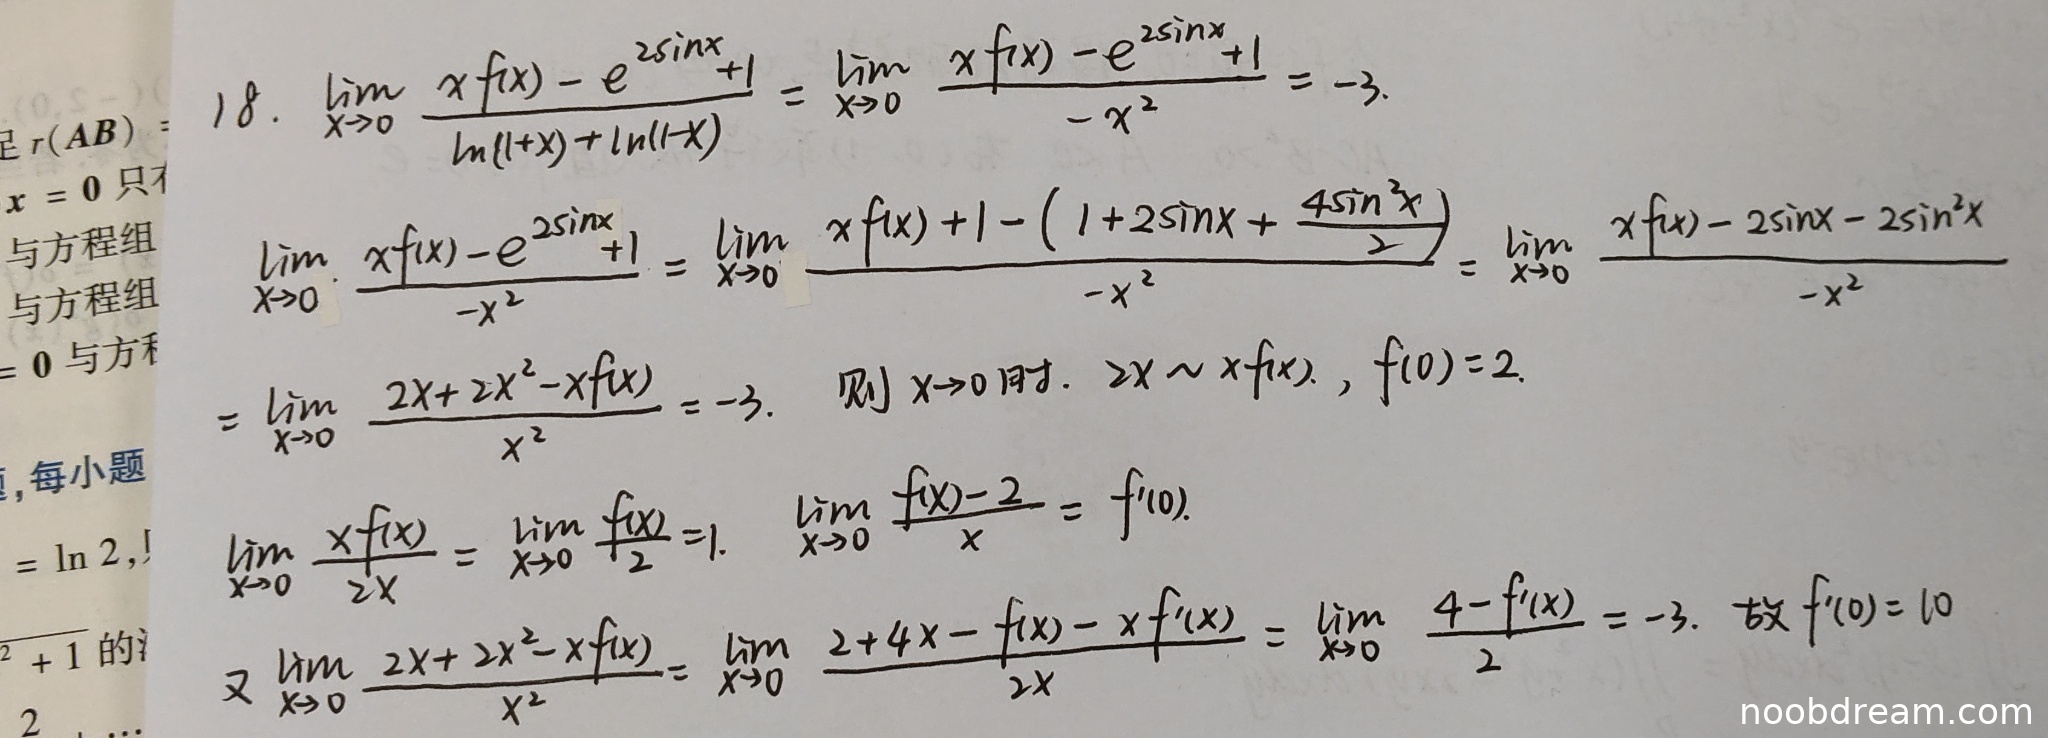 足 r(AB) =
x = 0 只有
与方程组
与方程组
= 0 与方程
,每小题
= ln 2,
2 + 1 的
2
18. lim x→0 (x f(x) - e^{2sinx} + 1)/(ln(1+x) + ln(1-x)) = lim x→0 (x f(x) - e^{2sinx} + 1)/(-x²) = -3.
lim x→0 (x f(x) - e^{2sinx} + 1)/(-x²) = lim x→0 (x f(x) + 1 - (1 + 2sinx + 4sin²x/2))/(-x²) = lim x→0 (x f(x) - 2sinx - 2sin²x)/(-x²)
= lim x→0 (2x + 2x² - x f(x))/x² = -3. 则 x→0 时. 2x ~ x f(x). , f(0) = 2.
lim x→0 x f(x)/2x = lim x→0 f(x)/2 = 1. lim x→0 (f(x) - 2)/x = f'(0).
又 lim x→0 (2x + 2x² - x f(x))/x² = lim x→0 (2 + 4x - f(x) - x f'(x))/2x = lim x→0 (4 - f'(x))/2 = -3. 故 f'(0) = 10
noobdream.com